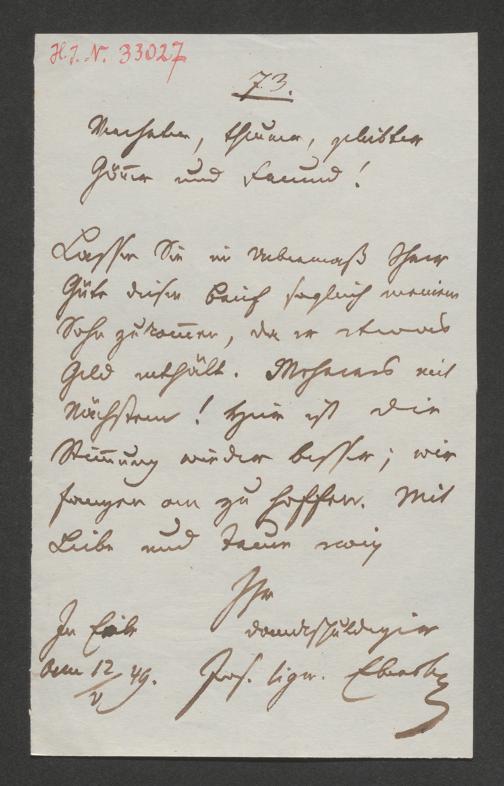 H. I. N. 33027
73.
Verehrter, theurer, geliebter
Gönner und Freund!
Lassen Sie im Uebermaß Ihrer
Güte diesen Brief sogleich meinem
Sohn zukommen, da er etwas
Geld enthält. Mehreres mit
Nächstem! Hier ist die
Stimmung wieder besser; wir
fangen an zu hoffen. Mit
Liebe und Treue ewig
Ihr
In Eile
dankschuldigster
den 12/V 49.